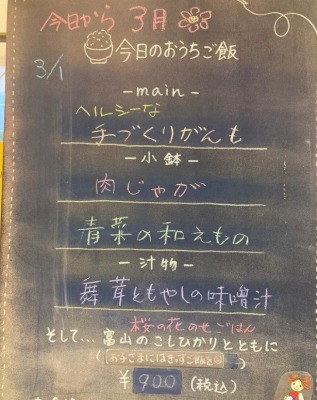 今日から 3月
今日のおうちご飯
3/1
-main-
ヘルシーな
手づくりがんも
-小鉢-
肉じゃが
青菜の和えもの
-汁物-
舞茸ともやしの味噌汁
桜の花のせごはん
そして…富山のこしひかりとともに
¥900(税込)